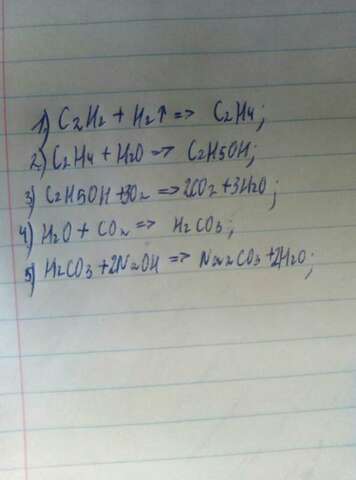 1) C2H2 + H2↑ => C2H4;
2) C2H4 + H2O => C2H5OH;
3) C2H5OH + 3O2 => 2CO2 + 3H2O;
4) H2O + CO2 => H2CO3;
5) H2CO3 + 2NaOH => Na2CO3 + 2H2O;